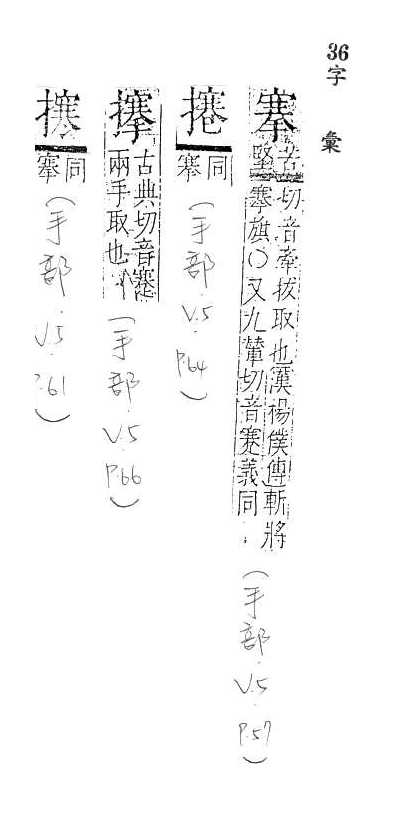 36字彙
搴
苦堅切音牽拔取也漢楊僕傳斬將
搴旗○又九輦切音蹇義同
(手部.V.5.P.57)
同搴
(手部.V.5.P.64)
古典切音蹇
兩手取也
(手部.V.5.P.66)
攐
同搴
(手部.V.5.P.61)